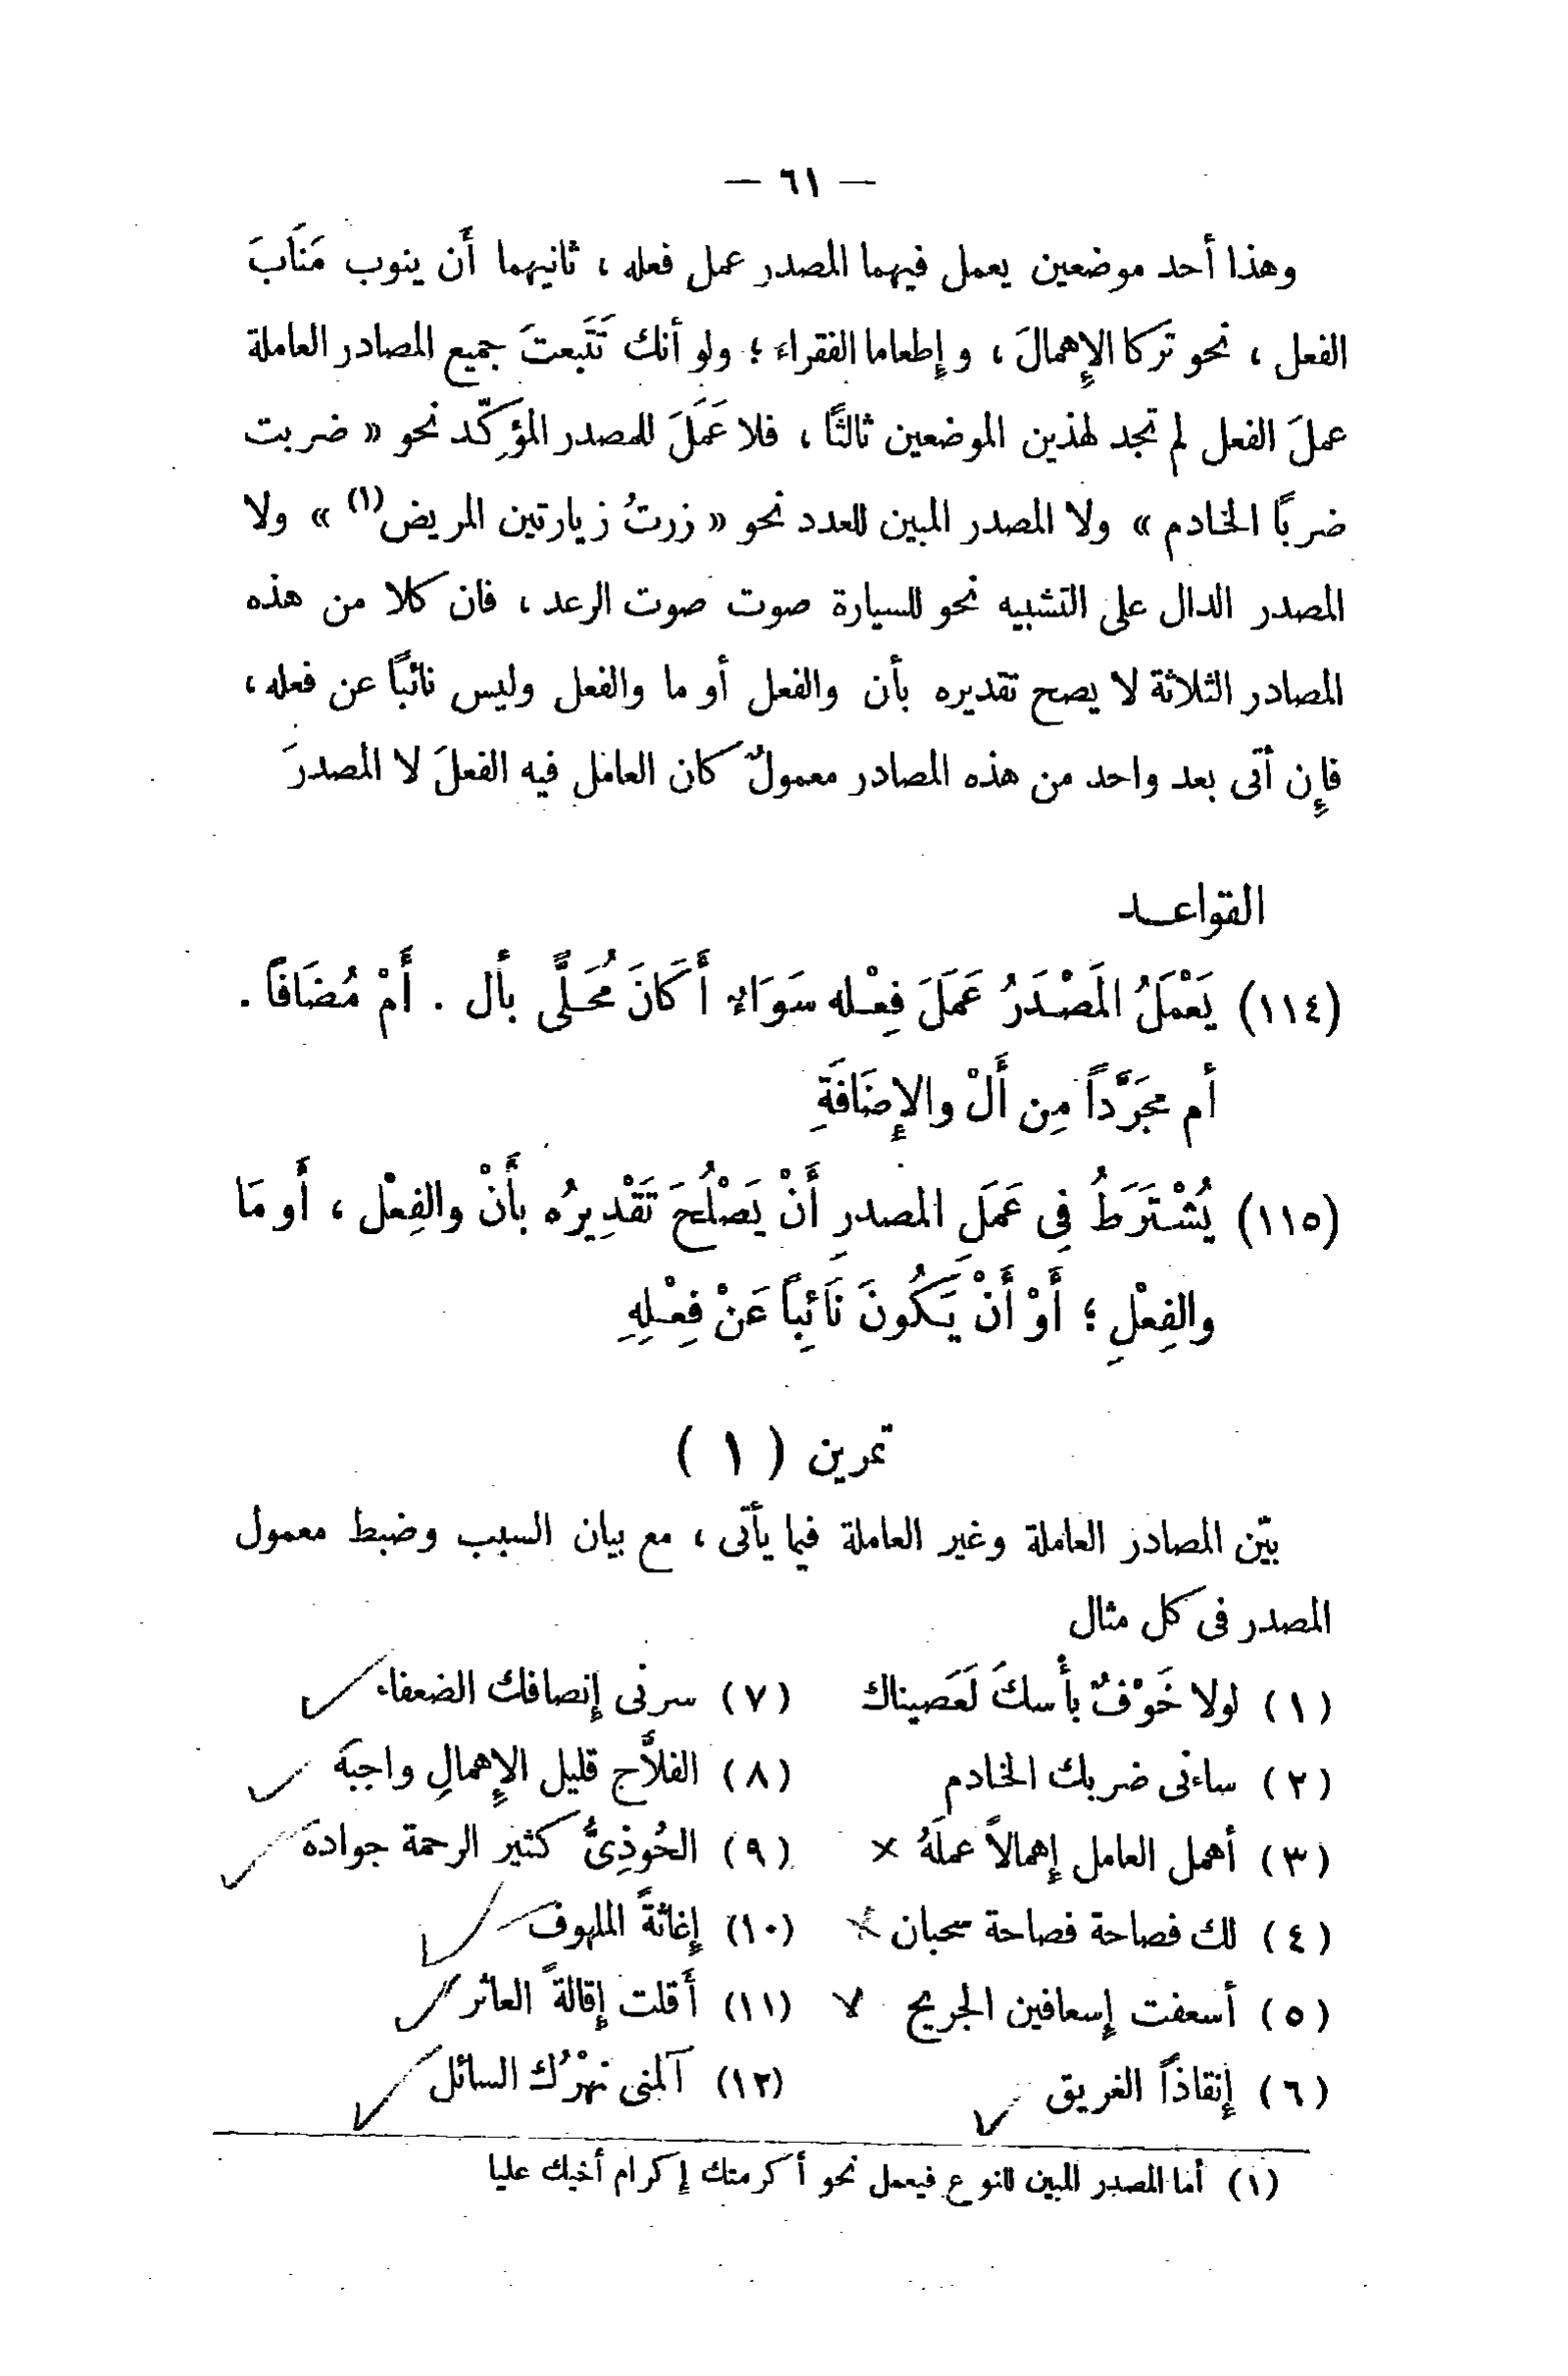 — ٦١ —
وهذا أحد موضعين يعمل فيهما المصدر عمل فعله ، ثانيهما أَن ينوب مَنَابَ
الفعل ، نحو تركا الإِهمالَ ، وإِطعاما الفقراء ؛ ولو أنك تَتَبعتَ جميع المصادر العاملة
عملَ الفعل لم تجد لهذين الموضعين ثالثًا ، فلا عَمَلَ للمصدر المؤكِّد نحو « ضربت
ضربًا الخادم » ولا المصدر المبين للعدد نحو « زرتُ زيارتين المريض(١) » ولا
المصدر الدال على التشبيه نحو للسيارة صوت صوت الرعد ، فان كلا من هذه
المصادر الثلاثة لا يصح تقديره بأن والفعل أو ما والفعل وليس نائبًا عن فعله ،
فإِن أتى بعد واحد من هذه المصادر معمولٌ كان العامل فيه الفعلَ لا المصدرَ
القواعـد
(١١٤) يَعْمَلُ المَصْدَرُ عَمَلَ فِعْله سَوَاءٌ أَكَانَ مُحَلًّى بأَل . أَمْ مُضَافاً .
أم مجَرَّداً مِن أَلْ والإِضَافَةِ
(١١٥) يُشْتَرَطُ فِى عَمَلِ المصدرِ أَنْ يَصْلُحَ تَقْدِيرُه بأَنْ والفِعْل ، أَو مَا
والفِعْلِ ؛ أَوْ أَنْ يَكُونَ نَائِباً عَنْ فِعْلِهِ
تمرين ( ١ )
بيّن المصادر العاملة وغير العاملة فيما يأتى ، مع بيان السبب وضبط معمول
المصدر فى كل مثال
(١) لولا خَوْفٌ بأْسكَ لَعَصيناك
(٢) ساءنى ضربك الخادم
(٣) أهمل العامل إِهمالاً عملَهُ ×
(٤) لك فصاحة فصاحة سحبان ×
(٥) أسعفت إِسعافين الجريح
(٦) إِنقاذاً الغريق ✓
(٧) سرنى إِنصافك الضعفاء ✓
(٨) الفلاَّح قليل الإِهمالِ واجبَه ✓
(٩) الحُوذِىُّ كثير الرحمة جواده ✓
(١٠) إِغاثةً الملهوف ✓
(١١) أَقلت إِقالةً العاثر ✓
(١٢) آلمنى نهْرُك السائل ✓
(١) أما المصدر المبين للنوع فيعمل نحو أكرمتك إكرام أخيك عليا